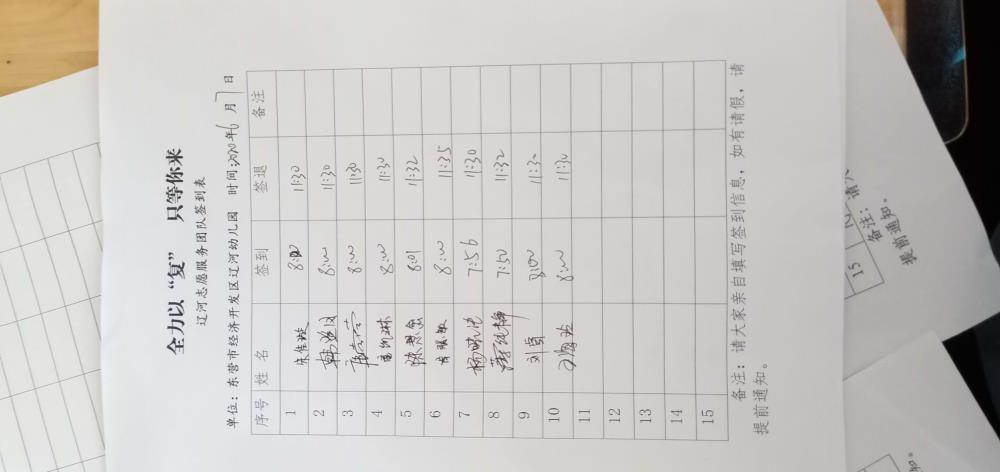 全力以“复” 只等你来
辽河志愿服务团队签到表
单位：东营市经济开发区辽河幼儿园 时间：2020年6月7日
序号 姓 名 签到 签退 备注
1 8:00 11:30
2 8:00 11:30
3 8:00 11:30
4 8:00 11:30
5 8:01 11:32
6 8:00 11:35
7 7:56 11:30
8 7:50 11:32
9 刘贞 8:00 11:30
10 8:00 11:30
11
12
13
14
15
备注：请大家亲自填写签到信息，如有请假，请
提前通知。
15
备注：
提前通知。